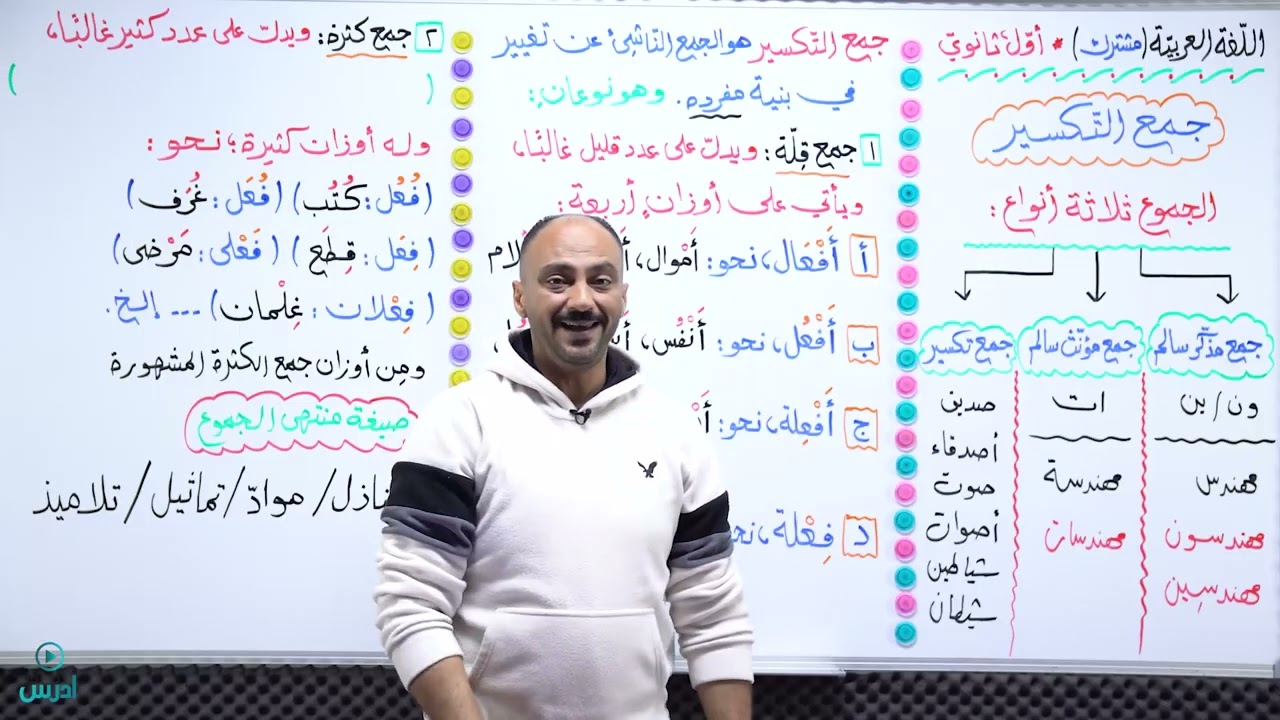 اللّغة العربيّة (مشترك) * أوّل ثانويّ
جمع التّكسير
الجموع ثلاثة أنواع:
جمع مذكّر سالم
ون/ين
مهندس
مهندسون
مهندسين
جمع مؤنّث سالم
ات
مهندسة
مهندسات
جمع تكسير
صديق
أصدقاء
صوت
أصوات
شياطين
شيطان
جمع التّكسير هو الجمع النّاشئ عن تغيير
في بنية مفرده. وهو نوعان:
١ جمع قِلّة: ويدلّ على عدد قليل غالبًا،
ويأتي على أوزانٍ أربعة:
أ أَفْعَال، نحو: أَمْوال،
ب أَفْعُل، نحو: أَنْفُس،
ج أَفْعِلة، نحو:
د فِعْلة، نحو
٢ جمع كثرة: ويدلّ على عدد كثير غالبًا،
( )
وله أوزان كثيرة؛ نحو:
(فُعُل: كُتُب) (فُعَل: غُرَف)
(فِعَل: قِطَع) (فَعْلى: مَرْضى)
(فِعْلان: غِلْمان) ... إلخ.
ومن أوزان جمع الكثرة المشهورة
صيغة منتهى الجموع
/ موادّ / تماثيل / تلاميذ
ادرس